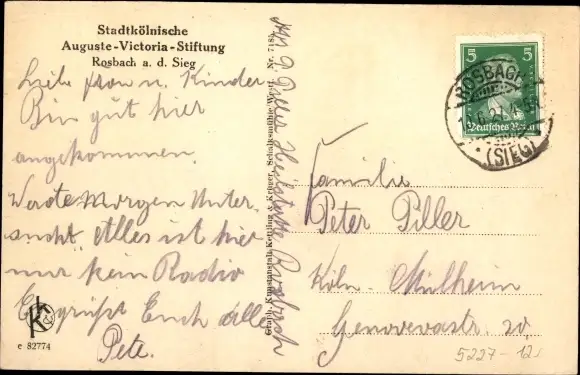 Stadtkölnische
Auguste-Victoria-Stiftung
Rosbach a. d. Sieg
Liebe Frau u. Kinder
Bin gut hier
angekommen.
Werde Morgen Unter-
sucht. Alles ist hier
nur kein Radio
Es grüßt Euch alle
Pete.
e 82774
Graph. Kunstanstalt Kettling & Krüger, Schalksmühle Westf. Nr. 718
Heilstätte Rosbach
5
5
Deutsches Reich
ROSBACH
(SIEG)
Familie
Peter Piller
Köln-Mülheim
Genovevastr. 20
5227-12